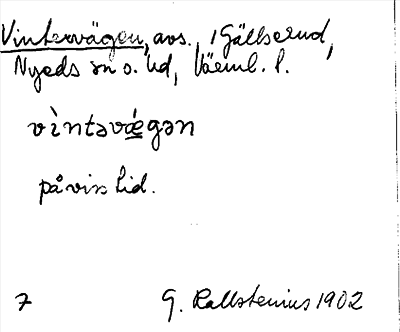 Vintervägen, avs., i Gällserud,
Nyeds sn o. hd, Värml. l.
vìntəvǽgən
på viss tid.
7 G. Kallstenius 1902